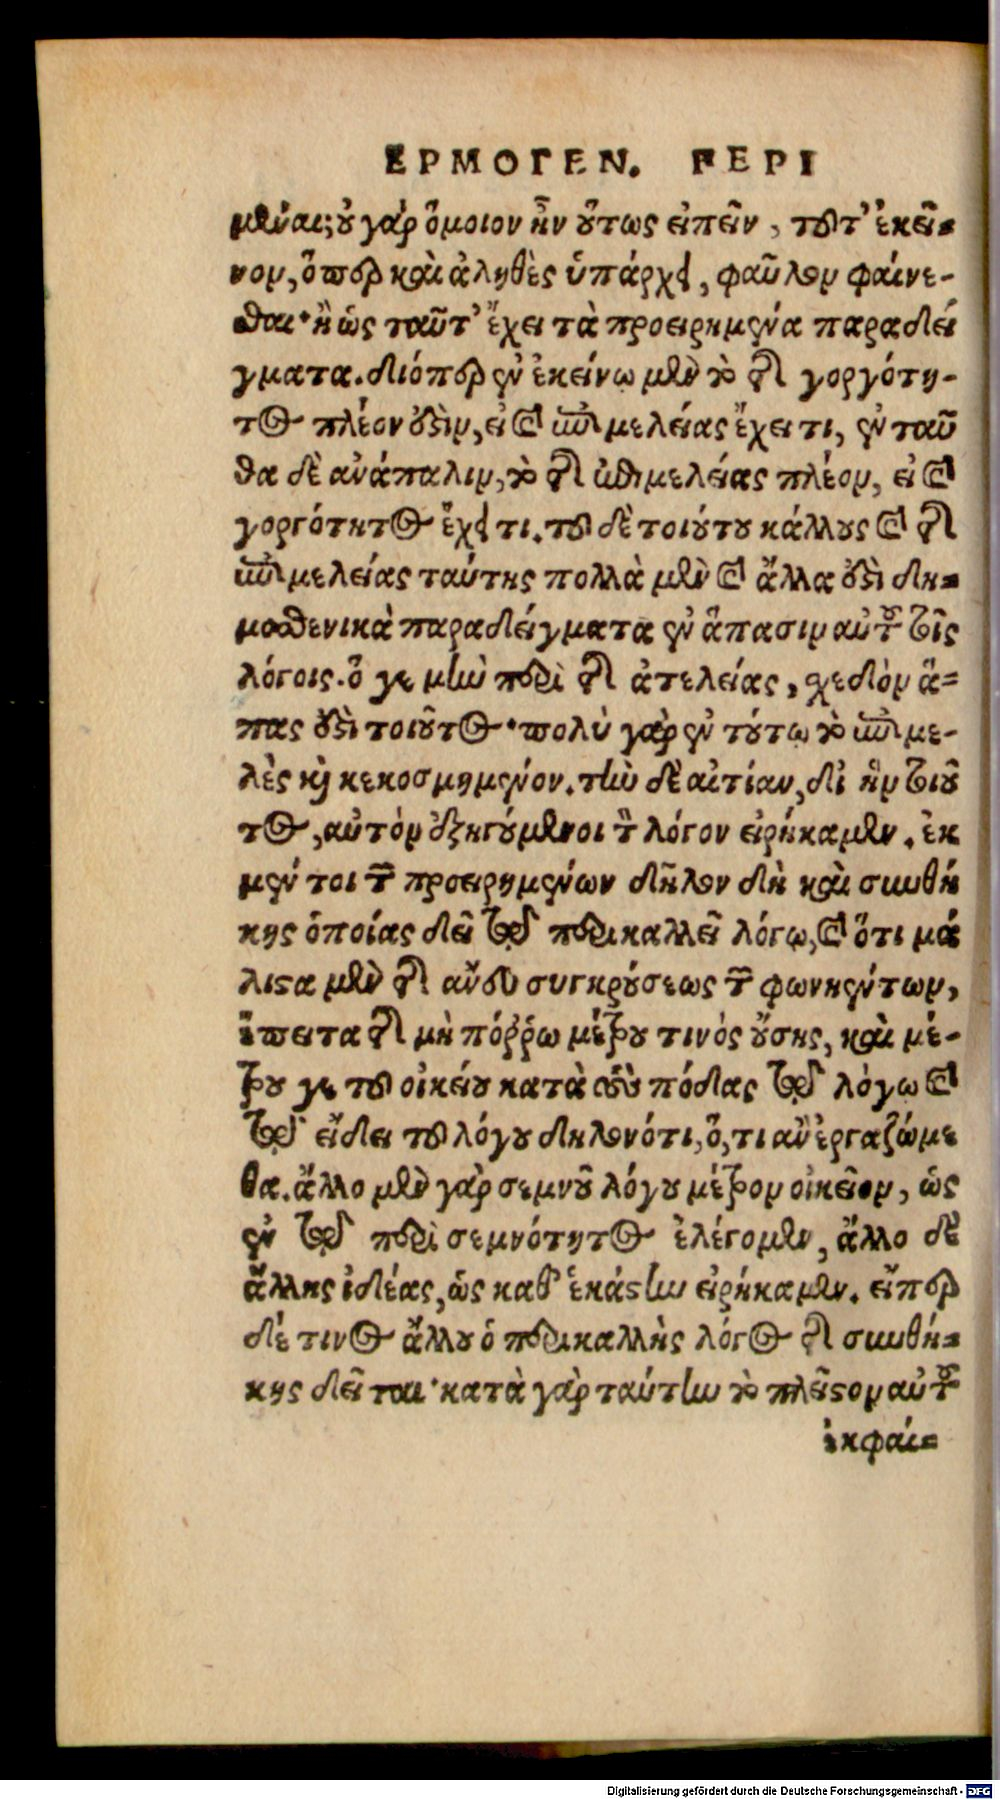 ΕΡΜΟΓΕΝ. ΠΕΡΙ
μέναι; οὐ γὰρ ὅμοιον ἦν οὕτως εἰπεῖν, τοῦτ' ἐκεῖ-
νον, ὅπερ καὶ ἀληθὲς ὑπάρχει, φαῦλον φαίνε-
σθαι· ἢ ὡς ταῦτ' ἔχει τὰ προειρημένα παραδεί
γματα. διόπερ ἐν ἐκείνῳ μὲν τὸ τῆς γοργότη-
τος πλέον ἐστὶν, εἰ καὶ ἐπιμελείας ἔχει τι, ἐν ταῦ
θα δὲ ἀνάπαλιν, τὸ τῆς ἐπιμελείας πλέον, εἰ καὶ
γοργότητος ἔχει τι. τοῦ δὲ τοιούτου κάλλους καὶ τῆς
ἐπιμελείας ταύτης πολλὰ μὲν καὶ ἄλλα ἐστὶ δη-
μοσθενικὰ παραδείγματα ἐν ἅπασιν αὐτοῦ τοῖς
λόγοις. ὅ γε μὴν περὶ τῆς ἀτελείας, σχεδὸν ἅ-
πας ἐστὶ τοιοῦτος· πολὺ γὰρ ἐν τούτῳ τὸ ἐπιμε-
λὲς καὶ κεκοσμημένον. τὴν δὲ αἰτίαν, δι' ἣν τοιοῦ
τος, αὐτὸν ἐξηγούμενοι τὸν λόγον εἰρήκαμεν. ἐκ
μέν τοι τῶν προειρημένων δῆλον δὴ καὶ συνθή
κης ὁποίας δεῖ τῷ περικαλλεῖ λόγῳ, καὶ ὅτι μά
λιστα μὲν τῆς ἄνευ συγκρούσεως τῶν φωνηέντων,
ἔπειτα τῆς μὴ πόῤῥω μέτρου τινὸς οὔσης, καὶ μέ-
τρου γε τοῦ οἰκείου κατὰ τοὺς πόδας τῷ λόγῳ καὶ
τῷ εἴδει τοῦ λόγου δηλονότι, ὅ, τι ἂν ἐργαζώμε
θα. ἄλλο μὲν γὰρ σεμνοῦ λόγου μέτρον οἰκεῖον, ὡς
ἐν τῷ περὶ σεμνότητος ἐλέγομεν, ἄλλο δὲ
ἄλλης ἰδέας, ὡς καθ' ἑκάστην εἰρήκαμεν. εἴπερ
δέ τινος ἄλλου ὁ περικαλλὴς λόγος τῆς συνθή-
κης δεῖται· κατὰ γὰρ ταύτην τὸ πλεῖστον αὐτοῦ
ἐκφαί-
Digitalisierung gefördert durch die Deutsche Forschungsgemeinschaft - DFG